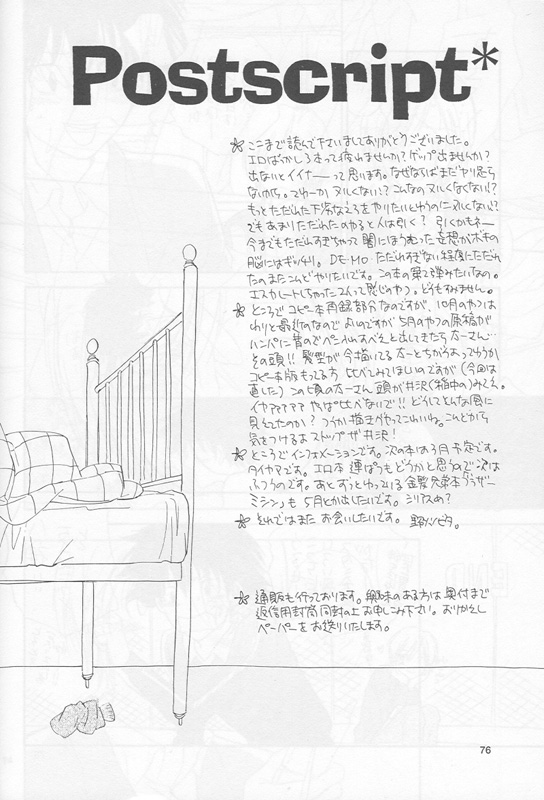 Postscript*
☆ ここまで読んで下さいましてありがとうございました。
エロばっかしろって疲れませんか?ゲップ出ませんか?
出ないとイイナーーって思います。なぜならばまだヤり足ら
ないから。てゆーかヌルくない!?こんなのヌルくなくない!?
もっとただれた下劣なエロをやりたいとゆうのにヌルくない!?
でもあまりただれたのやると人は引く?引くかもネー
今までもただれすぎちゃって闇にほうむった妄想がボチの
脳にはギッシリ。DE・MO・ただれすぎない程度にただれ
たのまたこんどやりたいです。この本の巣で弾みたいなの。
エスカレートしちゃった2人って感じのやつ。どうもすみません。
☆ ところでコピー本再録部分なのですが、10月のやつは
わりと最近のなのでよいのですが5月のやつの原稿が
ハンパに昔のでペーハいあべえと出してきたら太一さん…
その頭!!髪型が今描いてる太一とちがうよってゆうか
コピー本版もってる方 比べてみてほしいのですが(今回は
直した)この頃の太一さん頭が井沢(稲中の)みてえ。
イヤアアアアア やっぱ比べないで!!どうしてどんな風に
見えてたのか?つうか描きやってこわいね。こんどから
気をつけるよストップザ井沢!
☆ ところでインフォメーションです。次の本は3月予定です。
タイヤマです。エロ本 連ぱつもどうかと思うので次は
ふつうのです。あと ずっとゆっている金髪兄弟本「ブラザー
ミシン」も 5月とか出したいです。シリアスめ?
☆ それではまた お会いしたいです。
☆ 通販も行っております。興味のある方は奥付まで
返信用封筒同封の上お申しこみ下さい。おりかえし
ペーパーをお送りいたします。
76